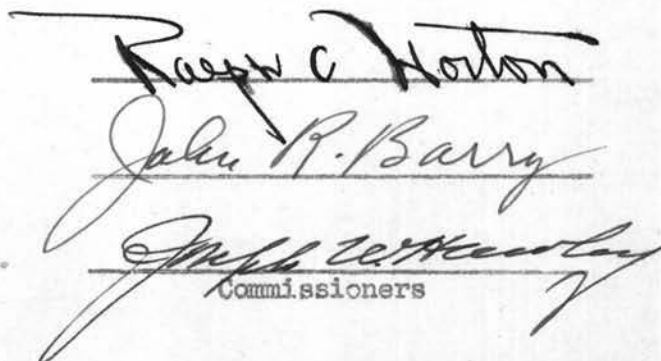 Ralph C Horton
John R. Barry
Joseph W. Hawley
Commissioners